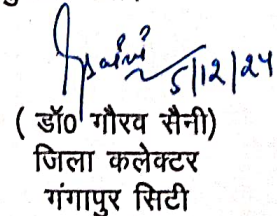 5/12/24
( डॉ0 गौरव सैनी)
जिला कलेक्टर
गंगापुर सिटी